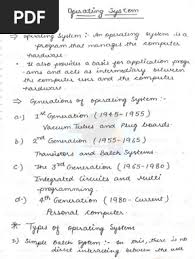 PDF
Operating System
⇒ Operating System :- An operating system is a
program that manages the computer
hardware.
• It also provides a basis for application progr-
ams and acts as intermediary between
the computer users and the computer
hardware.
⇒ Generations of operating System :-
a.) 1st Generation (1945-1955)
Vacuum Tubes and Plug boards
b.) 2nd Generation (1955-1965)
Transistors and Batch Systems
c.) The 3rd Generation (1965-1980)
Integrated Circuits and Multi
programming.
d.) 4th Generation (1980-Current)
Personal computer
* Types of operating System
Simple Batch System :- In this, there is no
direct interaction between the user